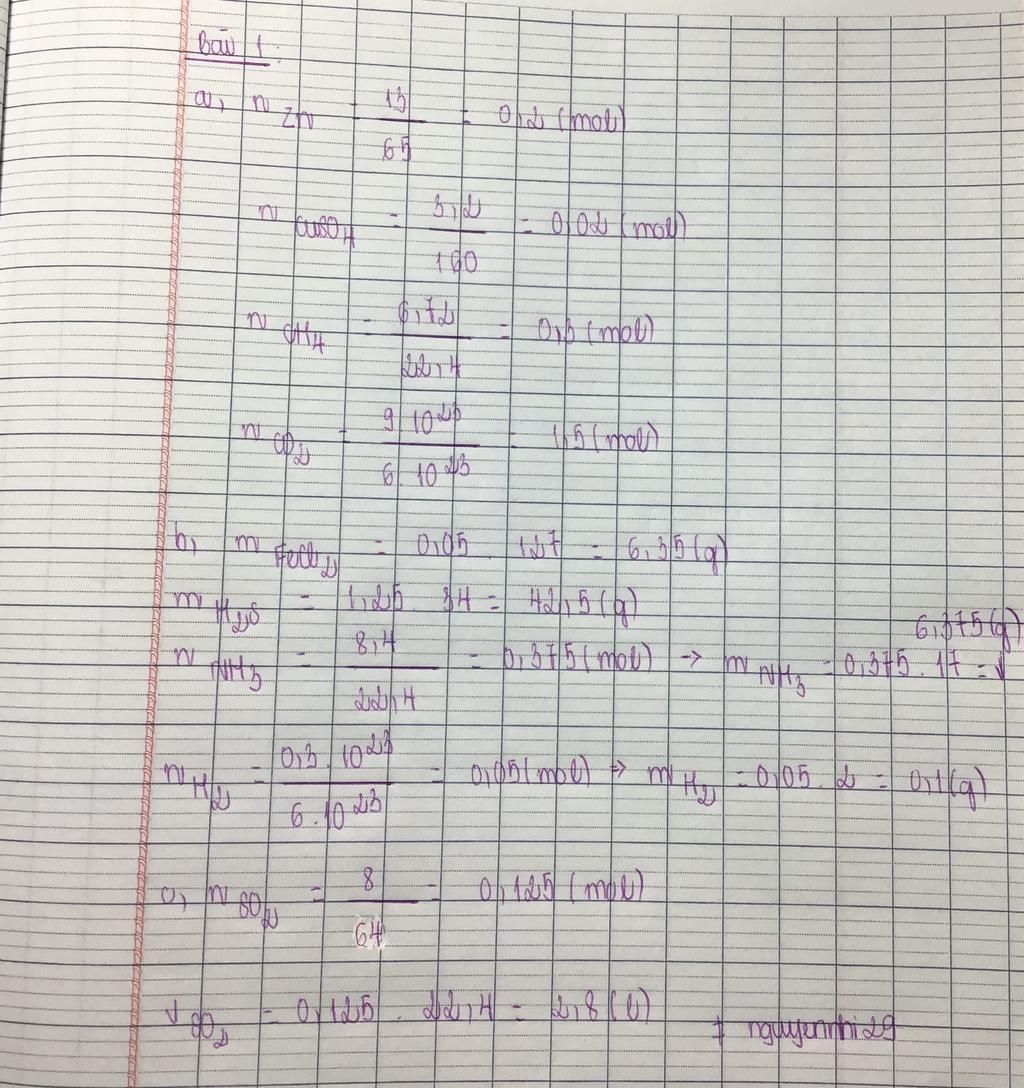 Bài 1.
a, n Zn = 13/65 = 0,2 (mol)
n CuSO4 = 3,2/160 = 0,02 (mol)
n CH4 = 6,72/22,4 = 0,3 (mol)
n CO2 = 9.10^23/6.10^23 = 1,5 (mol)
b, m FeCl2 = 0,05 . 127 = 6,35 (g)
m H2S = 1,25 . 34 = 42,5 (g)
n NH3 = 8,4/22,4 = 0,375 (mol) → m NH3 = 0,375 . 17 = 6,375 (g)
n H2 = 0,3 . 10^23/6 . 10^23 = 0,05 (mol) → m H2 = 0,05 . 2 = 0,1 (g)
c, n SO2 = 8/64 = 0,125 (mol)
V SO2 = 0,125 . 22,4 = 2,8 (l)
# nguyennhi29